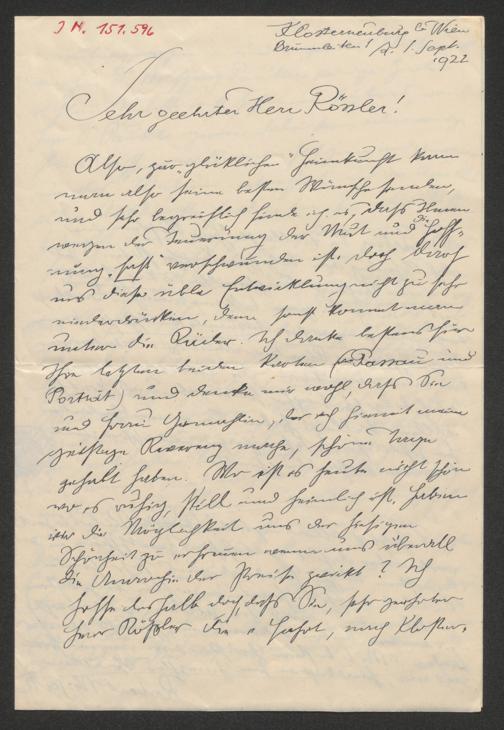 J.N. 151.596
Klosterneuburg b/ Wien
d. 1. Sept.
1922
Sehr geehrter Herr Rössler!
Also, zur "glücklichen" Heimkunft kann
man also seine besten Wünsche senden,
und sehr begreiflich finde ich es, daß Ihnen
wegen der Teuerung der Mut und die Hoff-
nung "fast" verschwunden ist. Doch darf
uns diese üble Entwicklung nicht zu sehr
niederdrücken, denn sonst kommt man
unter die Räder. Ich danke bestens für
Ihre letzten beiden Karten (Passau und
Porträt) und denke mir wohl, daß Sie
und Frau Gemahlin, der ich hiermit meine
Reverenz mache, schöne Tage
gehabt haben. Wo ist es heute nicht schön
wo es ruhig, still und heimlich ist. Haben
wir die Möglichkeit uns der hiesigen
Schönheit zu erfreuen wenn uns überall
die Anarchie der Preise zwickt? Ich
hoffe deshalb doch, daß Sie, sehr geehrter
Herr Rößler die "Fahrt" nach Kloster-